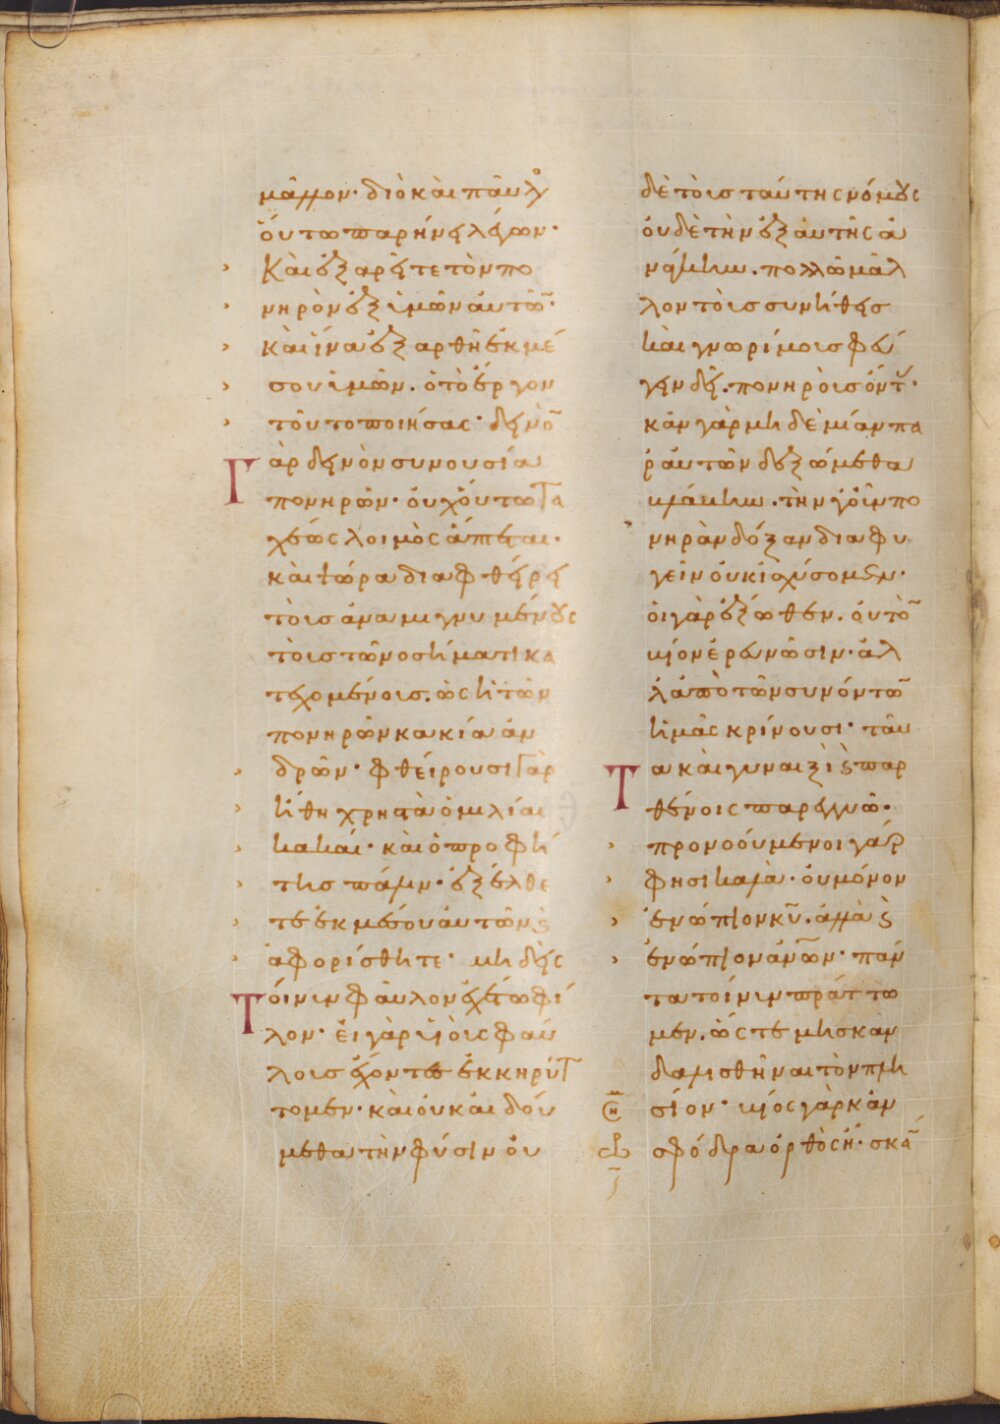 μᾶλλον· διὸ καὶ παῦλος
ὁύτω παρήνει λέγων·
Καὶ ἐξαρεῖτε τὸν πο
νηρὸν ἐξ ὑμῶν ἀυτῶν·
καὶ ἵνα ἐξαρθῆ ἐκ μέ
σου ὑμῶν. ὁ τὸ ἔργον
τοῦτο ποιήσας· δεινὸν
Γὰρ δεινὸν συνουσία
πονηρῶν· οὐχ ὁύτω τα
χέως λοιμὸς ἅπτεται·
καὶ ψώρα διαφθείρει
τοὺς ἀναμιγνυμένους
τοῖς τῶ νοσήματι κα
τεχομένοις. ὡς ἡ τῶν
πονηρῶν κακία ἀν
δρῶν· φθείρουσι γὰρ
ἤθη χρηστὰ ὁμιλίαι
κακαί· καὶ ὁ προφή
της πάλιν· ἐξέλθε
τε ἐκ μέσου ἀυτῶν καὶ
ἀφορίσθητε· μηδεὶς
Τοίνυν φαῦλον ἐχέτω φί
λον· εἰ γὰρ ὑιοὺς φαύ
λους ἔχοντες ἐκκηρύτ
τομεν· καὶ οὐκ αἰδού
μεθα τὴν φύσιν οὐ
δὲ τοὺς ταύτης νόμους
ὀυδὲ τὴν ἐξ ἀυτῆς ἀ
νάγκην. πολλῶ μᾶλ
λον τοὺς συνήθεις
καὶ γνωρίμους φεύ
γειν δεῖ. πονηροὺς ὄντας·
κἂν γὰρ μηδεμίαν πα
ρ' ἀυτῶν δεξώμεθα
βλάβην. τὴν γοῦν πο
νηρὰν δόξαν διαφυ
γεῖν οὐκ ἰσχύσομεν·
οἱ γὰρ ἔξωθεν. οὐ τὸν
βίον ἐρευνῶσιν· ἀλ
λ' ἀπὸ τῶν συνόντων
ἡμᾶς κρίνουσι· ταῦ
Τα καὶ γυναιξὶ καὶ παρ
θένοις παρεγγυῶ·
προνοούμενοι γάρ
φησι καλὰ· οὐ μόνον
ἐνώπιον κυ. ἀλλὰ καὶ
ἐνώπιον ἀνων· πάν
τα τοίνυν πράττω
μεν. ὥστε μὴ σκαν
δαλισθῆναι τὸν πλη
σίον· βίος γὰρ κἂν
σφόδρα ὀρθὸς ἦ· σκαν